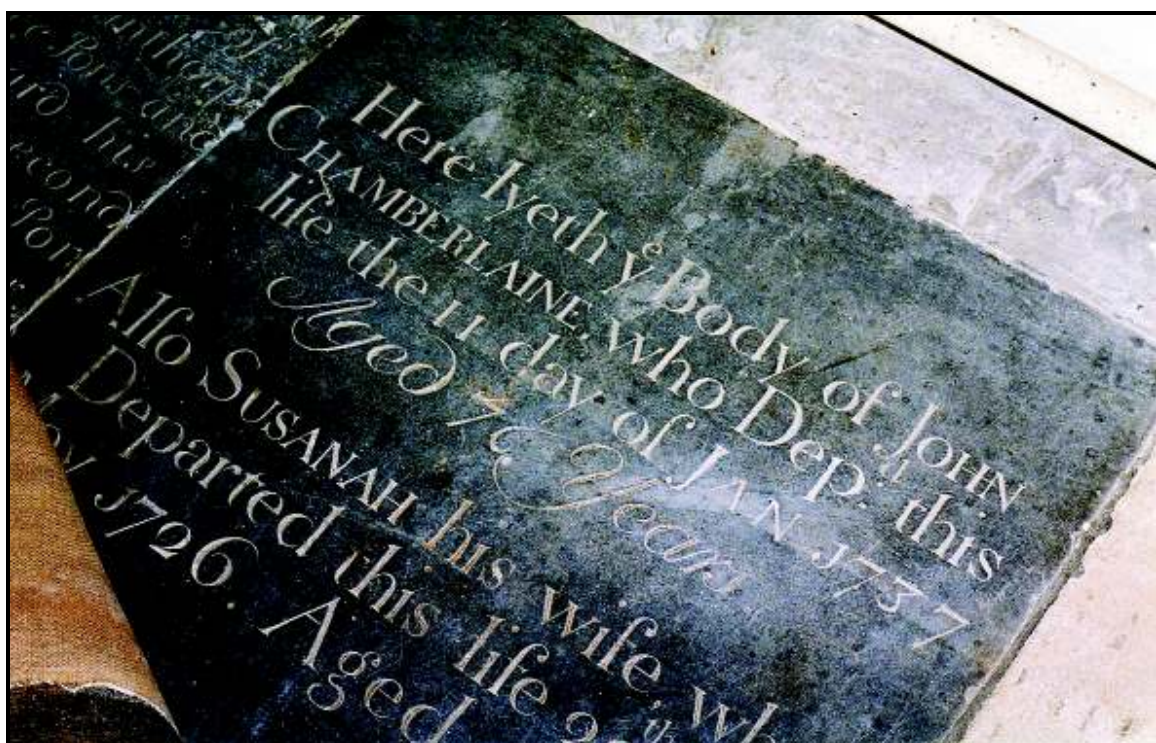 his
econd
Here lyeth yᵉ Body of JOHN
CHAMBERLAINE, who Dep: this
life the 11 day of JAN 1737
Aged Years
Alſo SUSANAH his wife wh
Departed this life 2
1726. Aged